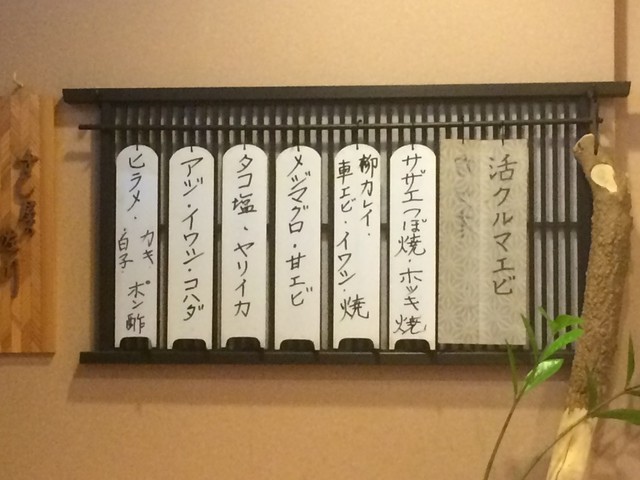 活クルマエビ
サザエつぼ焼・ホッキ焼
柳カレイ・
車エビ・イワシ・焼
メジマグロ・甘エビ
タコ塩・ヤリイカ
アジ・イワシ・コハダ
ヒラメ・カキ
白子 ポン酢